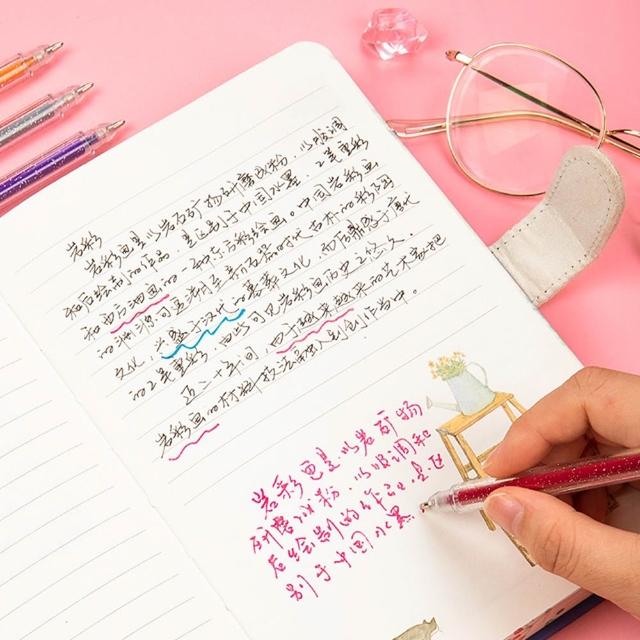 岩彩
岩彩画是以岩石矿物研磨成粉,以胶调
和后绘制的作品,是区别于中国水墨,工笔重彩
和西方油画的一种东方彩绘画。中国岩彩画
的渊源可至新石器时代
文化,兴盛于汉代的墓葬文化,而后
的工笔重彩,由此可见岩彩画历史之悠久。
近二十年间,由于越来越来
岩彩画的材料技法融入到创作当中。
岩彩画是以岩矿物
研磨成粉,以胶调和
后绘制的作品,是区
别于中国水墨